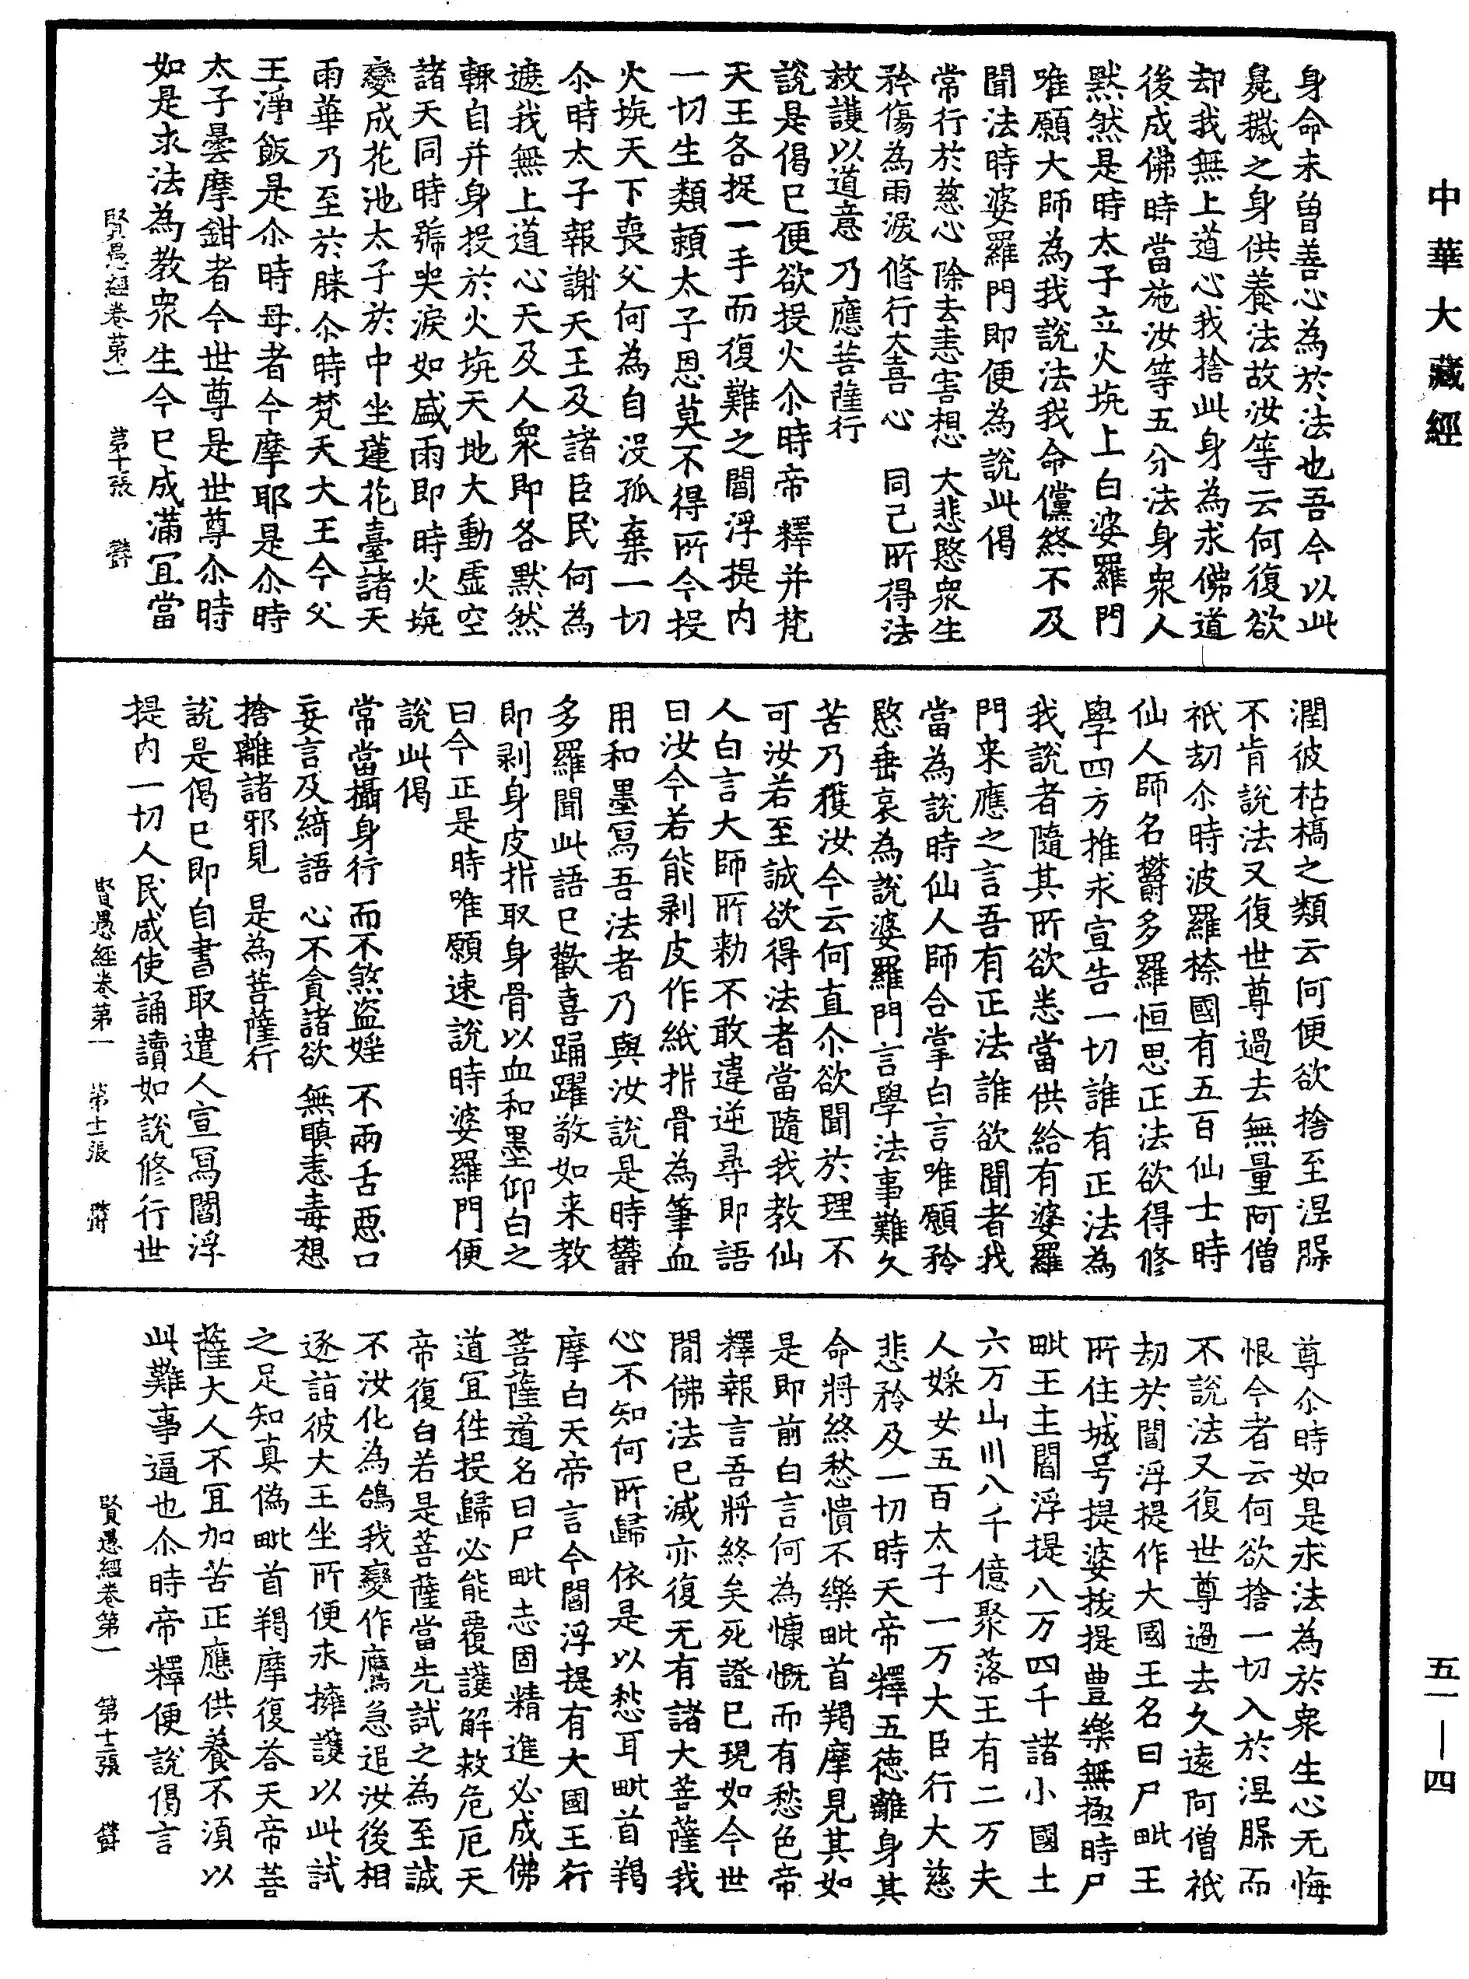 中華大藏經
身命未曾善心為於法也吾今以此
臭穢之身供養法故汝等云何復欲
却我無上道心我捨此身為求佛道
後成佛時當施汝等五分法身衆人
默然是時太子立火坑上白婆羅門
唯願大師為我說法我命儻終不及
聞法時婆羅門即便為說此偈
常行於慈心 除去恚害想 大悲愍衆生
矜傷為雨淚 修行大喜心 同己所得法
救護以道意 乃應菩薩行
說是偈已便欲投火尒時帝釋并梵
天王各捉一手而復難之閻浮提内
一切生類賴太子恩莫不得所今投
火坑天下喪父何為自没孤棄一切
尒時太子報謝天王及諸臣民何為
遮我無上道心天及人衆即各默然
輙自并身投於火坑天地大動虛空
諸天同時號哭淚如盛雨即時火坑
變成花池太子於中坐蓮花臺諸天
雨華乃至於膝尒時梵天大王今父
王淨飯是尒時母者今摩耶是尒時
太子曇摩鉗者今世尊是世尊尒時
如是求法為教衆生今已成滿宜當
賢愚經卷苐一 苐十張 欝
潤彼枯槁之類云何便欲捨至涅槃
不肯說法又復世尊過去無量阿僧
祇劫尒時波羅㮈國有五百仙士時
仙人師名欝多羅恒思正法欲得修
學四方推求宣告一切誰有正法為
我說者隨其所欲悉當供給有婆羅
門来應之言吾有正法誰欲聞者我
當為說時仙人師合掌白言唯願矜
愍垂哀為說婆羅門言學法事難久
苦乃獲汝今云何直尒欲聞於理不
可汝若至誠欲得法者當隨我教仙
人白言大師所勑不敢違逆尋即語
曰汝今若能剥皮作紙析骨為筆血
用和墨寫吾法者乃與汝說是時欝
多羅聞此語已歡喜踊躍敬如来教
即剥身皮析取身骨以血和墨仰白之
曰今正是時唯願速說時婆羅門便
說此偈
常當攝身行 而不煞盗婬 不兩舌惡口
妄言及綺語 心不貪諸欲 無瞋恚毒想
捨離諸邪見 是為菩薩行
說是偈已即自書取遣人宣寫閻浮
提内一切人民咸使誦讀如說修行世
賢愚經卷第一 第十一張 欝
尊尒時如是求法為於衆生心无悔
恨今者云何欲捨一切入於涅槃而
不說法又復世尊過去久遠阿僧祇
劫於閻浮提作大國王名曰尸毗王
所住城号提婆拔提豊樂無極時尸
毗王主閻浮提八万四千諸小國土
六万山川八千億聚落王有二万夫
人婇女五百太子一万大臣行大慈
悲矜及一切時天帝釋五德離身其
命將終愁憒不樂毗首羯摩見其如
是即前白言何為慷慨而有愁色帝
釋報言吾將終矣死證已現如今世
間佛法已滅亦復无有諸大菩薩我
心不知何所歸依是以愁耳毗首羯
摩白天帝言今閻浮提有大國王行
菩薩道名曰尸毗志固精進必成佛
道宜往投歸必能覆護解救危厄天
帝復白若是菩薩當先試之為至誠
不汝化為鴿我變作鷹急追汝後相
逐詣彼大王坐所便求擁護以此試
之足知真偽毗首羯摩復荅天帝菩
薩大人不宜加苦正應供養不須以
此難事逼也尒時帝釋便說偈言
賢愚經卷第一 第十二張 欝
五一—四